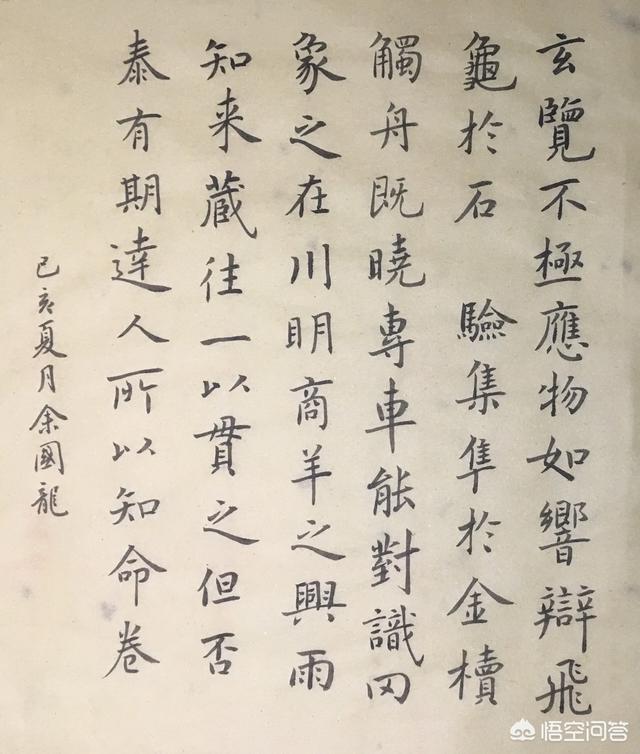 玄覽不極應物如響辯飛
龜於石 驗集隼於金櫝
觸舟既曉專車能對識罔
象之在川明商羊之興雨
知来蔵往一以貫之但否
泰有期達人所以知命卷
己亥夏月余國龍
悟空问答